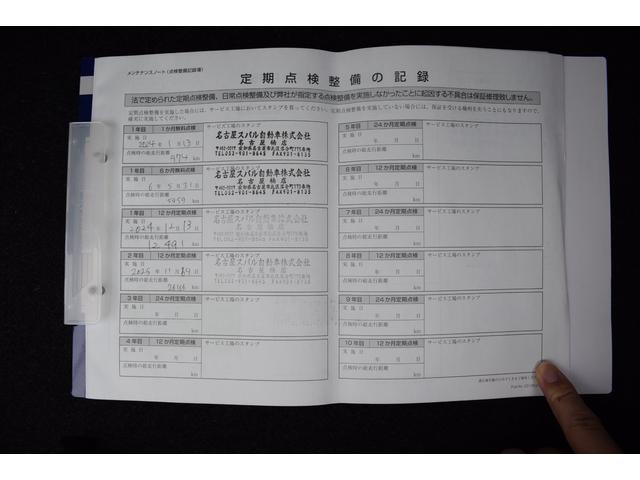 メンテナンスノート（点検整備記録簿）
定期点検整備の記録
法で定められた定期点検整備、日常点検整備及び弊社が指定する点検整備を実施しなかったことに起因する不具合は保証修理致しません。
定期点検整備を実施した場合には、サービス工場においてスタンプを貰ってください。
1年目 1か月無料点検
サービス工場のスタンプ
実施日
2024年1月13日
点検時の総走行距離
974 km
名古屋スバル自動車株式会社
名古屋楠店
TEL052-901-8645 FAX901-8135
1年目 6か月無料点検
サービス工場のスタンプ
実施日
6年5月31日
点検時の総走行距離
5959 km
名古屋スバル自動車株式会社
名古屋楠店
TEL052-901-8645 FAX901-8135
1年目 12か月定期点検
サービス工場のスタンプ
実施日
2024年12月13日
点検時の総走行距離
12,491 km
名古屋スバル自動車株式会社
名古屋楠店
TEL052-901-8645 FAX901-8135
2年目 12か月定期点検
サービス工場のスタンプ
実施日
2025年11月
点検時の総走行距離
km
名古屋スバル自動車株式会社
名古屋楠店
TEL052-901-8645 FAX901-8135
3年目 24か月定期点検
サービス工場のスタンプ
実施日
年 月 日
点検時の総走行距離
km
4年目 12か月定期点検
サービス工場のスタンプ
実施日
年 月 日
点検時の総走行距離
km
5年目 24か月定期点検
サービス工場のスタンプ
実施日
年 月 日
点検時の総走行距離
km
6年目 12か月定期点検
サービス工場のスタンプ
実施日
年 月 日
点検時の総走行距離
km
7年目 24か月定期点検
サービス工場のスタンプ
実施日
年 月 日
点検時の総走行距離
km
8年目 12か月定期点検
サービス工場のスタンプ
実施日
年 月 日
点検時の総走行距離
km
9年目 24か月定期点検
サービス工場のスタンプ
実施日
年 月 日
点検時の総走行距離
km
10年目 12か月定期点検
サービス工場のスタンプ
実施日
年 月 日
点検時の総走行距離
km